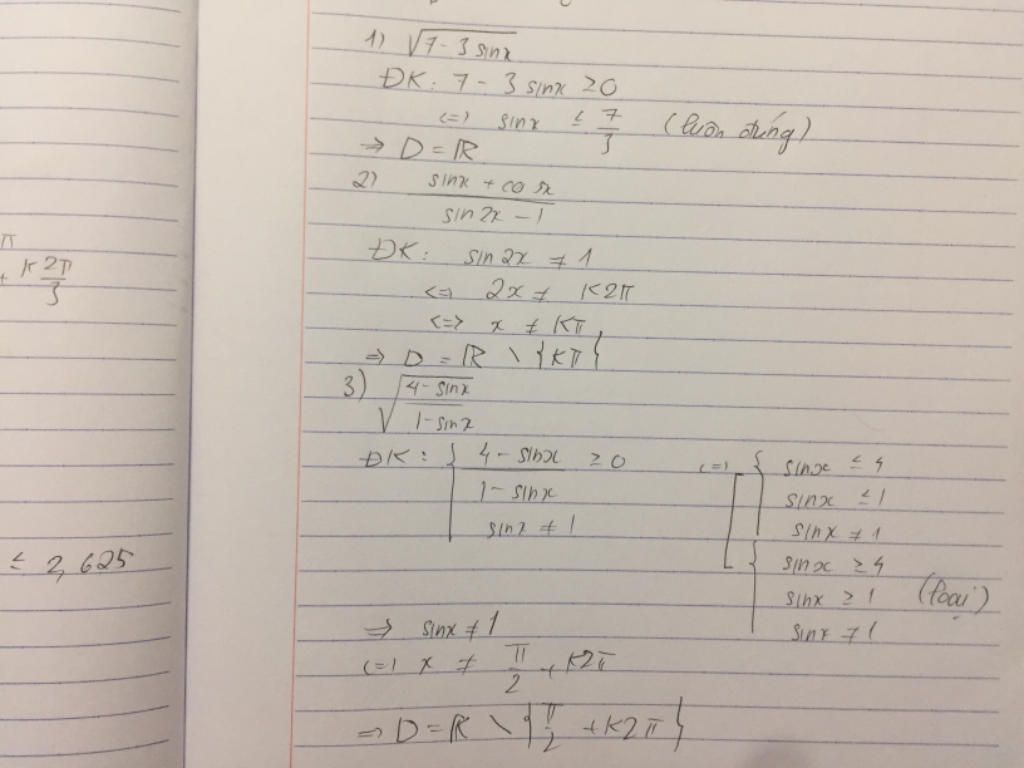 1) √(7 - 3 sinx)
ĐK: 7 - 3 sinx ≥ 0
<=> sinx ≤ 7/3 (luôn đúng)
=> D = ℝ
2) (sinx + cosx)/(sin2x - 1)
ĐK: sin2x ≠ 1
<=> 2x ≠ K2π
<=> x ≠ Kπ
=> D = ℝ \ {Kπ}
3) √((4 - sinx)/(1 - sinx))
ĐK: { (4 - sinx)/(1 - sinx) ≥ 0
sinx ≠ 1
<=> [ { sinx ≤ 4
sinx ≤ 1
sinx ≠ 1
{ sinx ≥ 4
sinx ≥ 1 (loại)
sinx ≠ 1
=> sinx ≠ 1
<=> x ≠ π/2 + K2π
=> D = ℝ \ {π/2 + K2π}
π
+ K2π/3
≤ 2,625